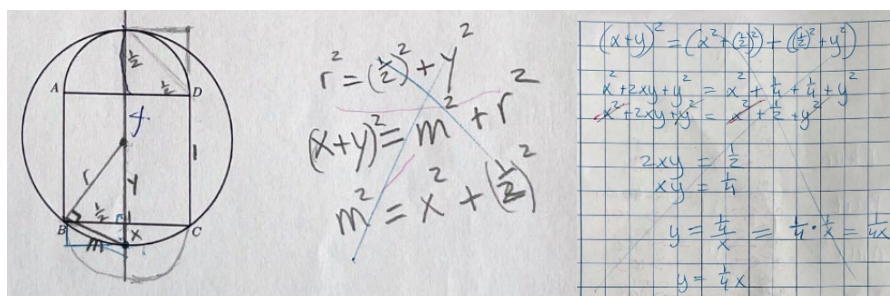 1/2
1/2
A
D
y
1
r
y
1/2
B
x
C
m
r² = (1/2)² + y²
(x+y)² = m² + r²
m² = x² + (1/2)²
(x+y)² = (x²+(1/2)²) + ((1/2)²+y²)
x²+2xy+y² = x² + 1/4 + 1/4 + y²
x²+2xy+y² = x² + 1/2 + y²
2xy = 1/2
xy = 1/4
y = 1/4/x = 1/4 · 1/x = 1/4x
y = 1/4 x